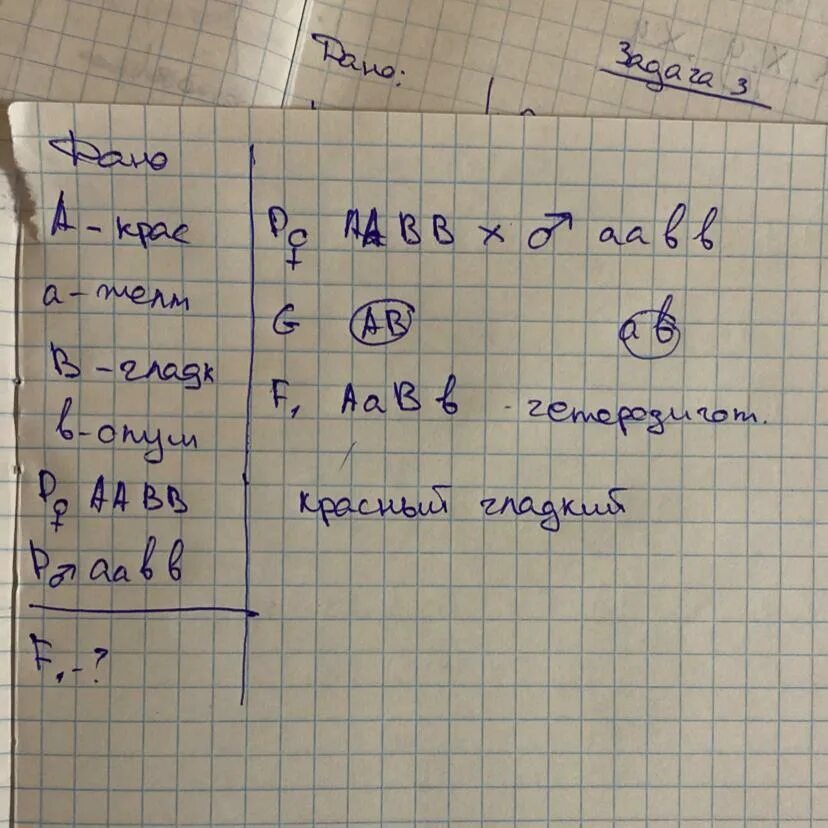 Дано:
Задача 3
Дано
А - крас
а - желт
В - гладк
в - опуш
P♀ ААВВ
P♂ аавв
F₁ - ?
P♀ ААВВ × ♂ аавв
G АВ ав
F₁ АаВв - гетерозигот.
красный гладкий